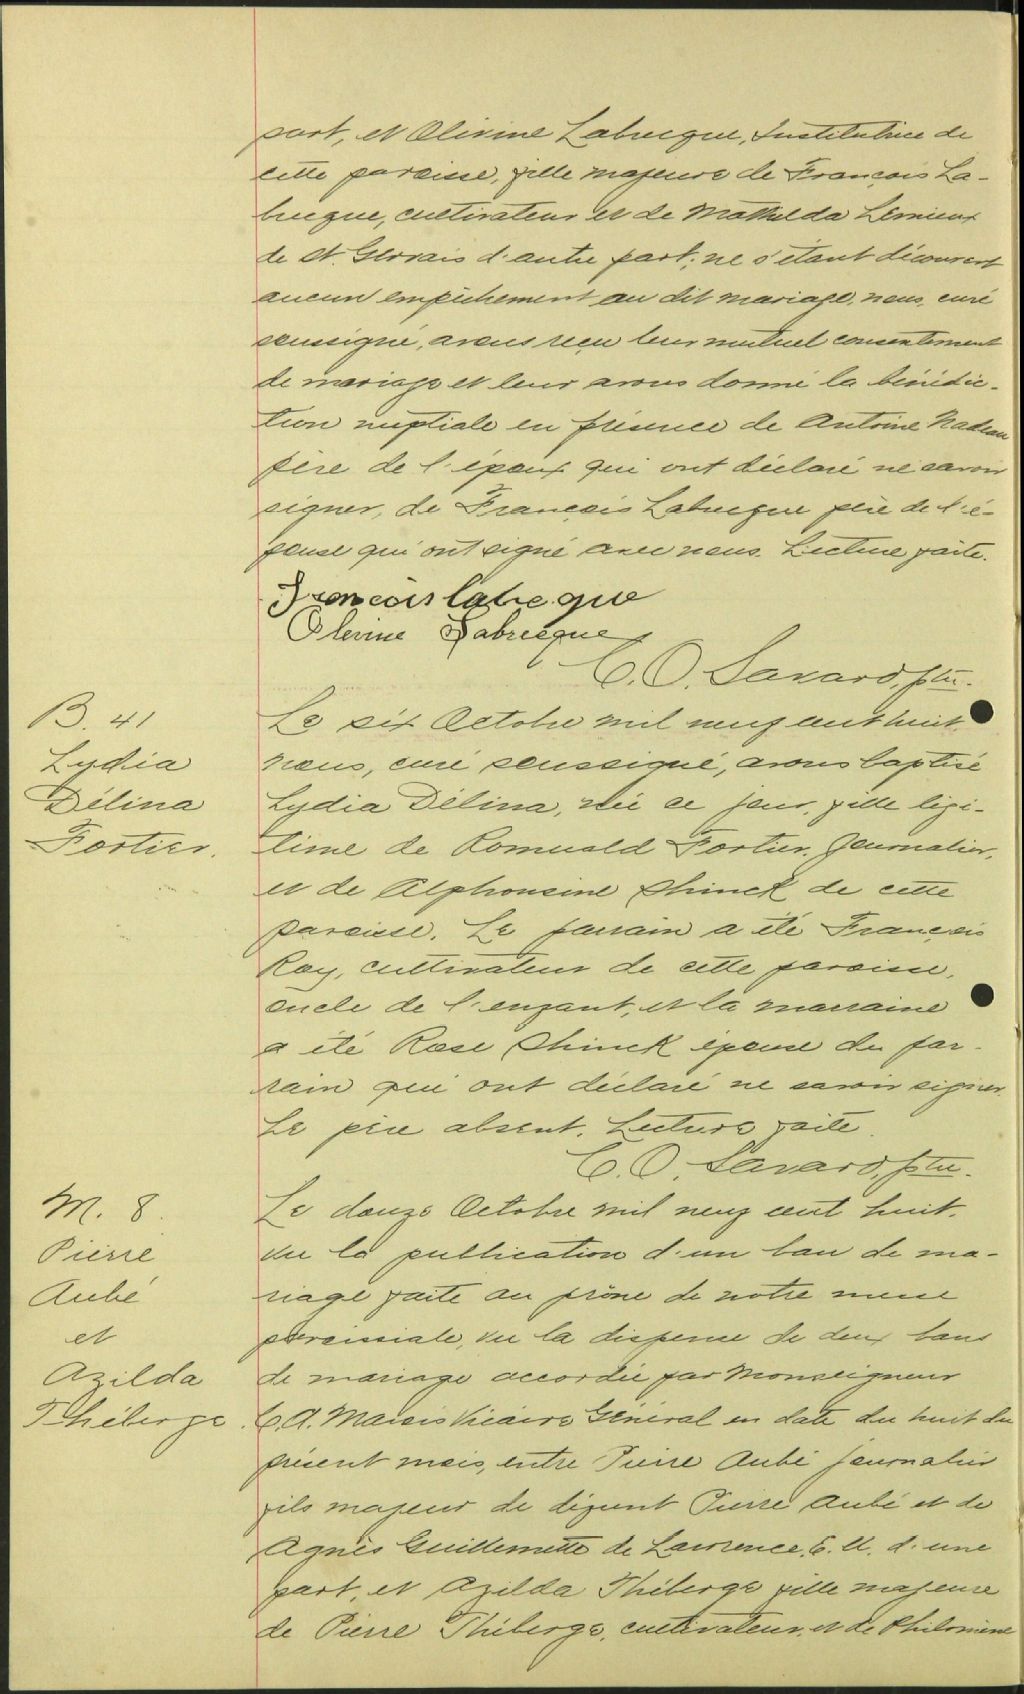 part, et Olivine Labrecque, Institutrice de
cette paroisse, fille majeure de François La-
brecque, cultivateur et de Mathilda Lemieux
de St. Gervais d'autre part; ne s'étant découvert
aucun empêchement au dit mariage, nous, curé
soussigné, avons reçu leur mutuel consentement
de mariage et leur avons donné la bénédic-
tion nuptiale en présence de Antoine Nadeau
père de l'époux qui ont déclaré ne savoir
signer, de François Labrecque père de l'é-
pouse qui ont signé avec nous. Lecture faite.
François labreque
Olevine Labrecque
C. O. Savard, ptre.
B. 41
Lydia
Délina
Fortier.
Le six Octobre mil neuf cent huit,
nous, curé soussigné, avons baptisé
Lydia Délina, née ce jour, fille légi-
time de Romuald Fortier, Journalier,
et de Alphonsine Shinck de cette
paroisse. Le parrain a été François
Roy, cultivateur de cette paroisse,
oncle de l'enfant, et la marraine
a été Rose Shinck épouse du par-
rain qui ont déclaré ne savoir signer.
Le père absent. Lecture faite.
C. O. Savard, ptre.
M. 8.
Pierre
Aubé
et
Azilda
Théberge.
Le douze Octobre mil neuf cent huit,
vu la publication d'un ban de ma-
riage faite au prône de notre messe
paroissiale, vu la dispense de deux bans
de mariage accordée par Monseigneur
C. A. Marois Vicaire Général en date du huit du
présent mois, entre Pierre Aubé journalier
fils majeur de défunt Pierre Aubé et de
Agnès Guillemette de Lawrence, E. U. d'une
part, et Azilda Théberge fille majeure
de Pierre Théberge, cultivateur, et de Philomène